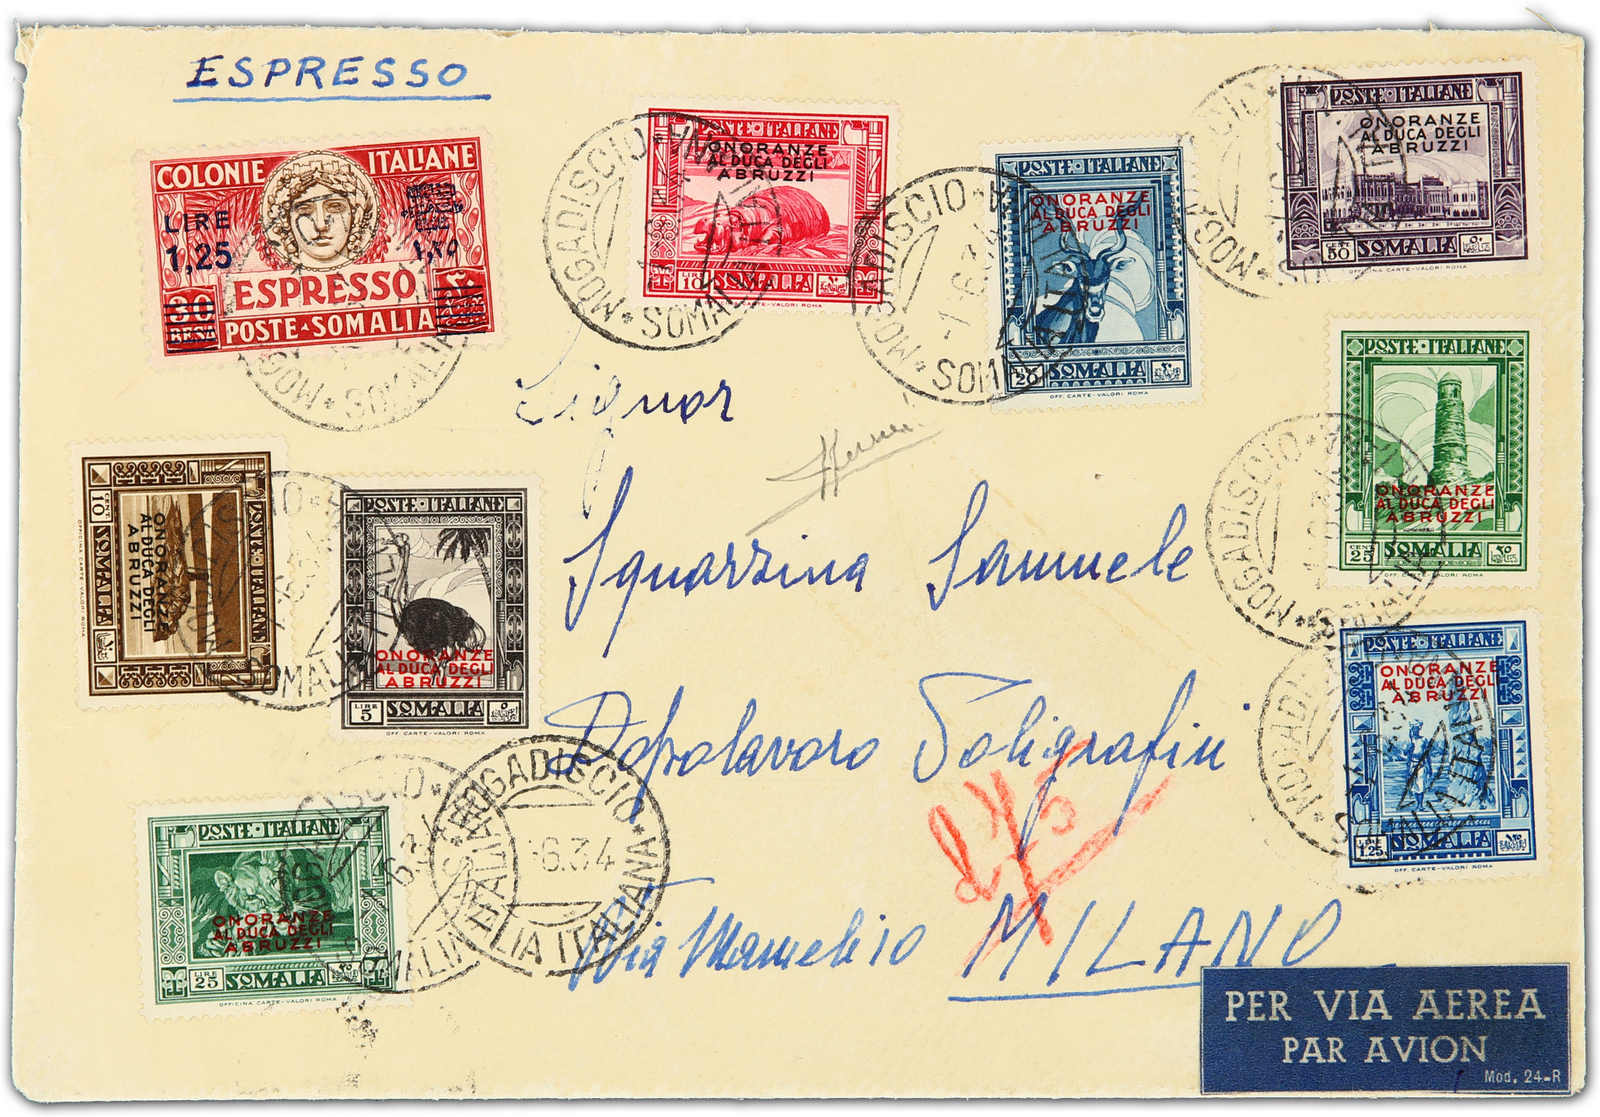 ESPRESSO
COLONIE ITALIANE
LIRE
1,25
30
BESA
ESPRESSO
POSTE SOMALIA
POSTE·ITALIANE
ONORANZE
AL DUCA DEGLI
ABRUZZI
LIRE
10 SOMALIA
OFFICINA CARTE-VALORI ROMA
MOGADISCIO
SOMALIA
POSTE·ITALIANE
ONORANZE
AL DUCA DEGLI
ABRUZZI
20 SOMALIA
OFF. CARTE-VALORI ROMA
MOGADISCIO
POSTE·ITALIANE
ONORANZE
AL DUCA DEGLI
ABRUZZI
50 SOMALIA
OFFICINA CARTE-VALORI ROMA
POSTE·ITALIANE
ONORANZE
AL DUCA DEGLI
ABRUZZI
CENT
25 SOMALIA
OFF. CARTE-VALORI ROMA
MOGADISCIO
POSTE·ITALIANE
ONORANZE
AL DUCA DEGLI
ABRUZZI
CENT
10 SOMALIA
OFFICINA CARTE-VALORI ROMA
POSTE·ITALIANE
ONORANZE
AL DUCA DEGLI
ABRUZZI
LIRE
5 SOMALIA
OFF. CARTE-VALORI ROMA
POSTE·ITALIANE
ONORANZE
AL DUCA DEGLI
ABRUZZI
LIRE
1.25 SOMALIA
OFF. CARTE-VALORI ROMA
POSTE·ITALIANE
ONORANZE
AL DUCA DEGLI
ABRUZZI
LIRE
25 SOMALIA
OFFICINA CARTE-VALORI ROMA
MOGADISCIO
6.34
SOMALIA ITALIANA
Signor
Squarzina Samuele
Dopolavoro Poligrafici
Via Mamelio MILANO
PER VIA AEREA
PAR AVION
Mod. 24-R